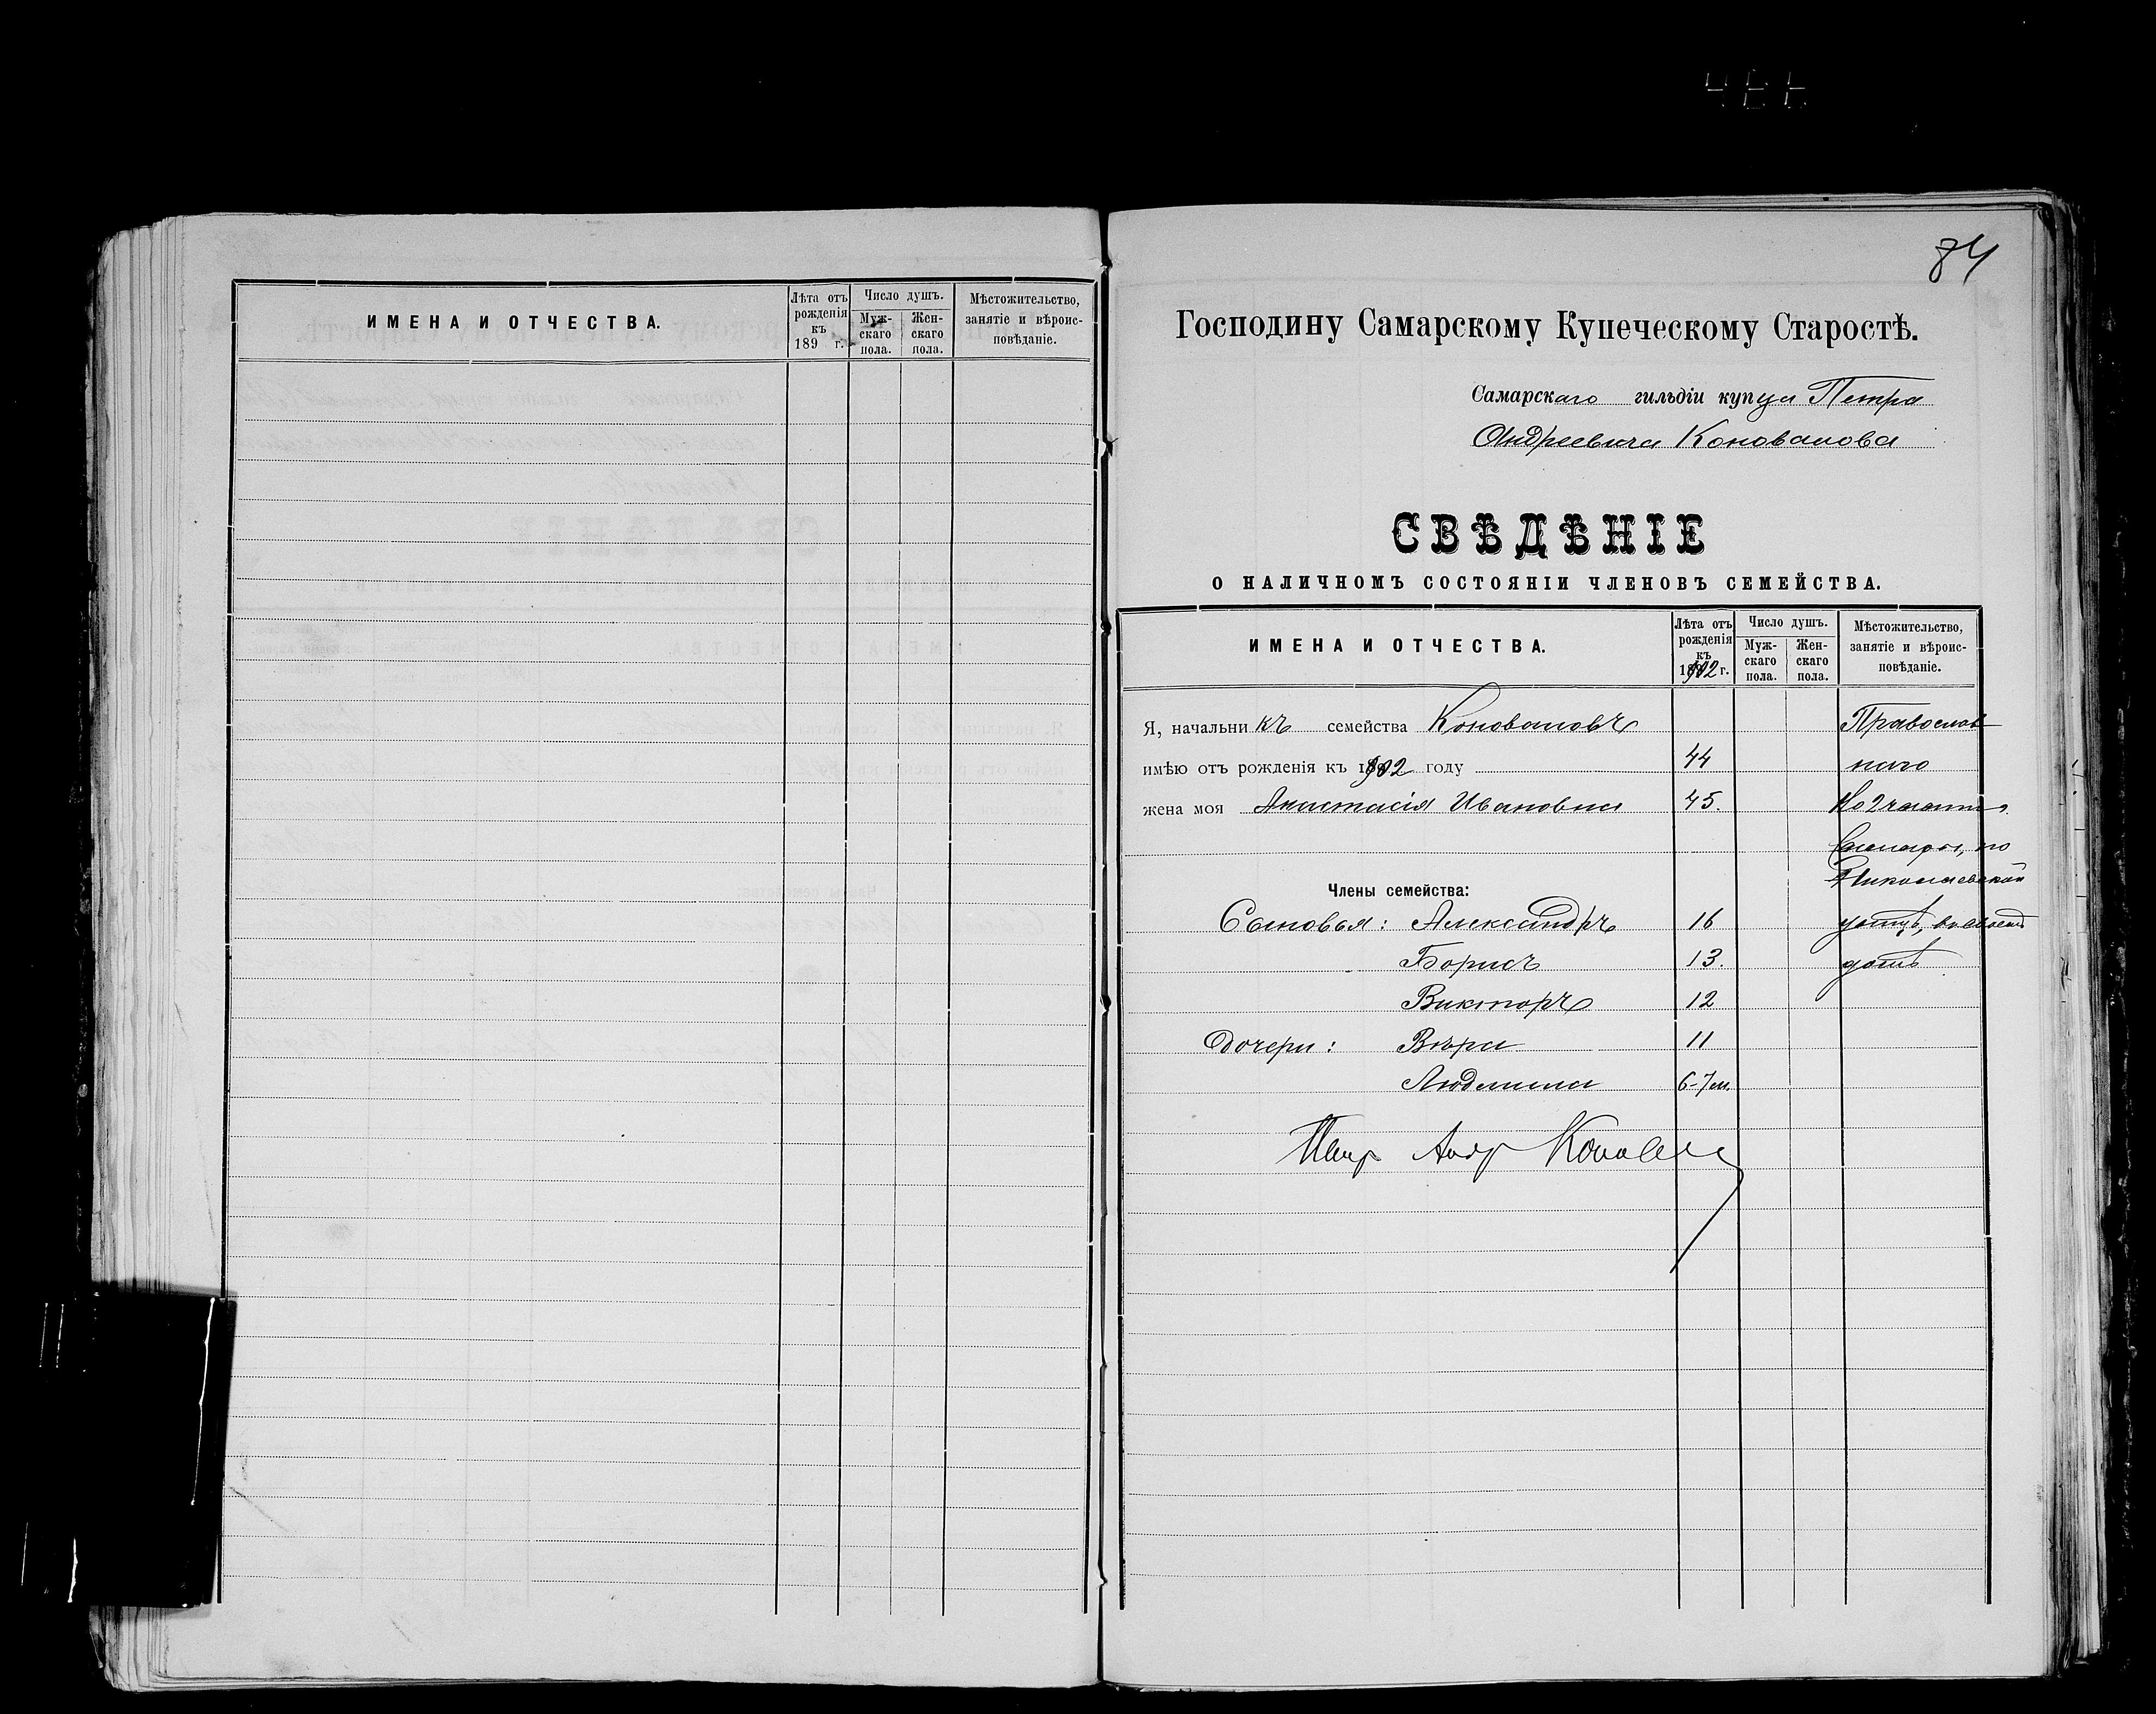 ИМЕНА И ОТЧЕСТВА.
Лѣта отъ рожденія къ 189 г.
Число душъ.
Муж-скаго пола.
Жен-скаго пола.
Мѣстожительство, занятіе и вѣроис-повѣданіе.
84
Господину Самарскому Купеческому Старостѣ.
Самарскаго гильдіи купца Петра
Андреевича Коновалова
СВѢДѢНІЕ
О НАЛИЧНОМЪ СОСТОЯНІИ ЧЛЕНОВЪ СЕМЕЙСТВА.
ИМЕНА И ОТЧЕСТВА.
Лѣта отъ рожденія къ 1902 г.
Число душъ.
Муж-скаго пола.
Жен-скаго пола.
Мѣстожительство, занятіе и вѣроис-повѣданіе.
Я, начальникъ семейства Коноваловъ Православ
имѣю отъ рожденія къ 1902 году 44 наго
жена моя Анастасія Ивановна 45. Во 2 части
Самары, по
Николаевской
Члены семейства:
Сыновья: Александръ 16 улицѣ, въ своемъ
Борисъ 13. домѣ
Викторъ 12
Дочери: Вѣра 11
Людмила 6-7 м.
Петр Андр Коновалов